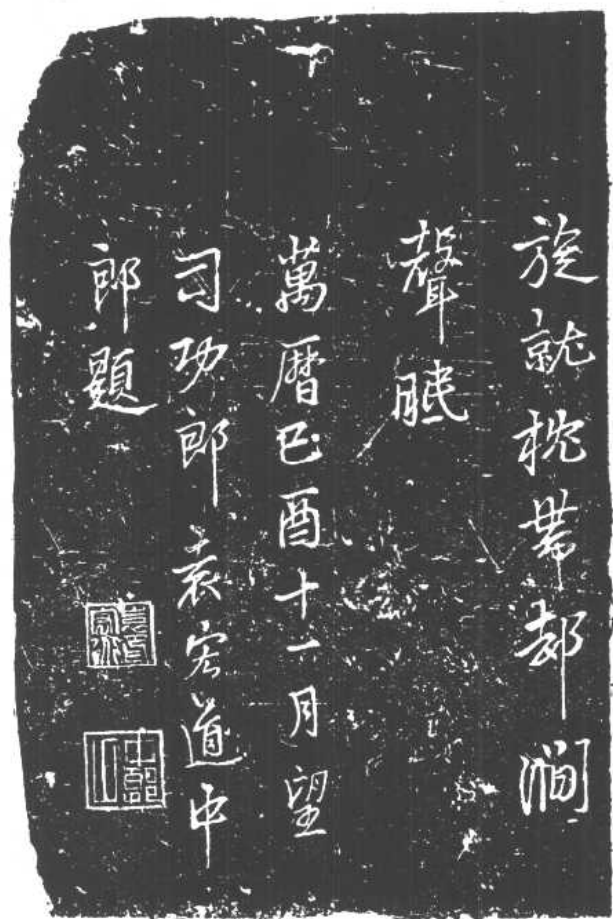 旋就枕帶却澗
聲眠
萬暦己酉十一月望
司功郎袁宏道中
郎題